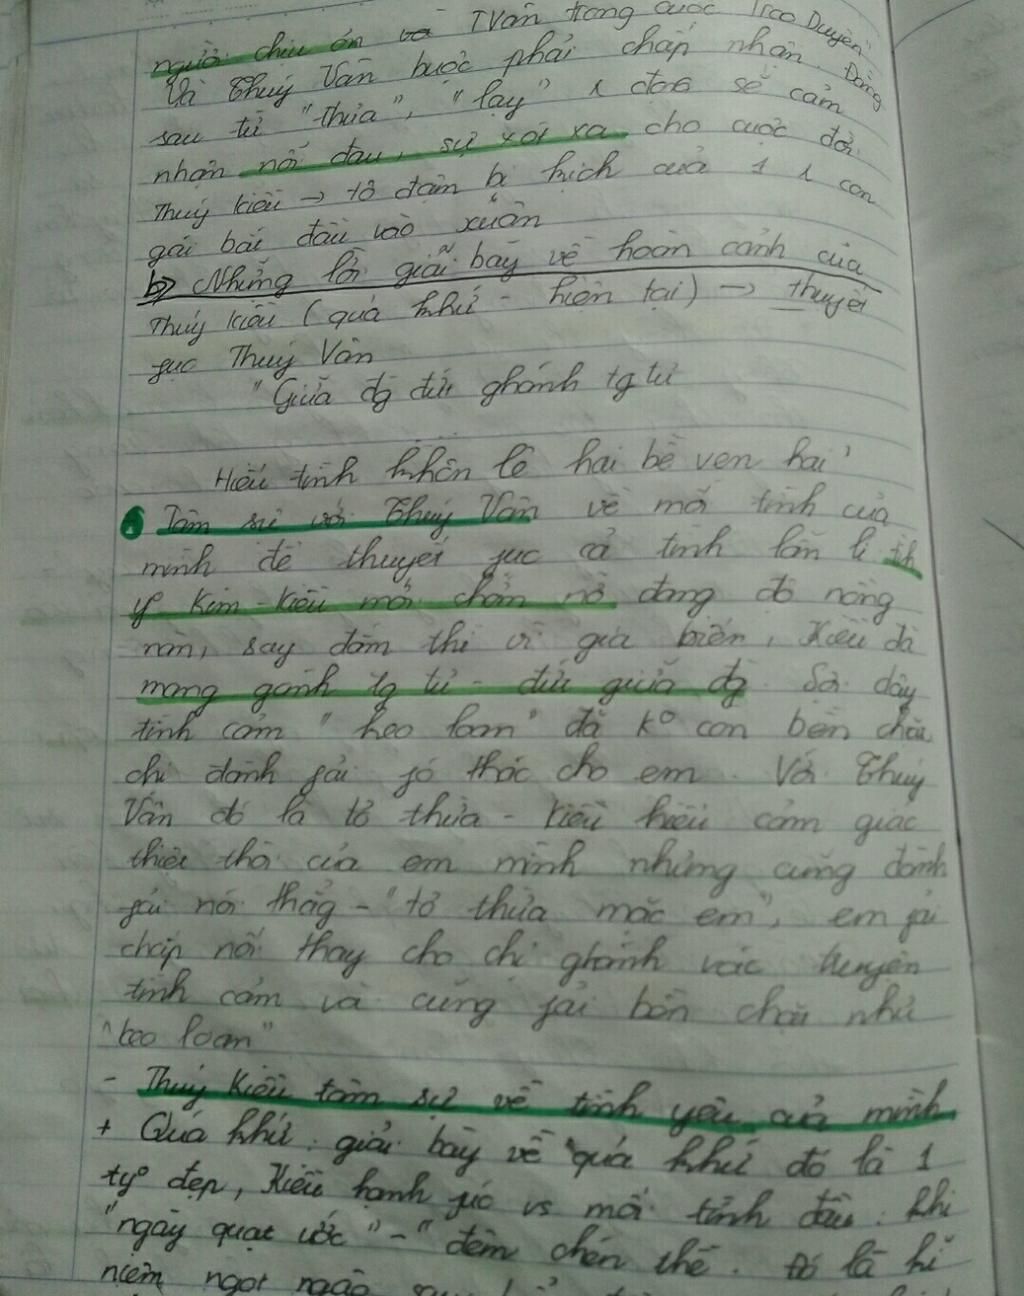 người chịu ơn và TVân trong cuộc "Trao Duyên"
Và Thúy Vân buộc phải chấp nhận. Đằng
sau từ "thưa", "lạy" 1 đoạ sẽ cảm
nhận nỗi đau, sự xót xa cho cuộc đời
Thúy Kiều → tô đậm bi kịch của 1 1 con
gái bắt đầu vào xuân
b) Những lời giãi bày về hoàn cảnh của
Thúy Kiều (quá khứ - hiện tại) → thuyết
fục Thúy Vân
"Giữa đg đứt ghánh tg tư
Hiếu tình khôn lẽ hai bề vẹn hai"
Tâm sự với Thúy Vân về mối tình của
mình để thuyết fục cả tình lẫn lí
yº Kim - Kiều mới chớm nở đang độ nồng
nàn, say đắm thì vì gia biến, Kiều đã
mang gánh tg tư - đứt giữa đg. Sợi dây
tình cảm "keo loan" đã kº còn bền chặt
chị đành fải fó thác cho em. Với Thúy
Vân đó là tơ thừa - Kiều hiểu cảm giác
thiệt thòi của em mình nhưng cũng đành
fải nói thẳg - "tơ thừa mặc em", em fải
chắp nối thay cho chị ghánh vác duyên
tình cảm và cũng fải bền chặt như
"keo loan"
- Thúy Kiều tâm sự về tình yêu của mình
+ Quá khứ: giãi bày về quá khứ đó là 1
tyº đẹp, Kiều hạnh fúc vs mối tình đầu: khi
"ngày quạt ước" - "đêm chén thề". Đó là kỉ
niệm ngọt ngào